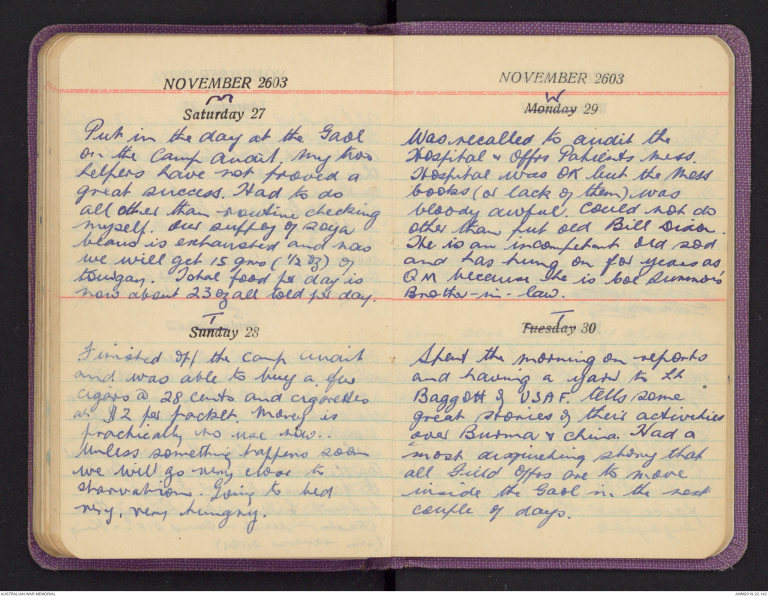 NOVEMBER 2603
M
Saturday 27
Put in the day at the Gaol
on the Camp Audit. My two
helpers have not proved a
great success. Had to do
all other than routine checking
myself. Our supply of soya
beans is exhausted and now
we will get 15 gms (½ oz) of
towgay. Total food per day is
now about 23 oz all told per day.
T
Sunday 28
Finished off the Camp Audit
and was able to buy a few
cigars @ 28 cents and cigarettes
at $2 per packet. Money is
practically no use now..
Unless something happens soon
we will go very close to
starvation. Going to bed
very, very hungry.
NOVEMBER 2603
W
Monday 29
Was recalled to audit the
Hospital & Offrs Patients Mess.
Hospital was OK but the Mess
books (or lack of them) was
bloody awful. Could not do
other than put old Bill
He is an incompetent old sod
and has hung on for years as
QM because he is Col Summons
Brother-in-law.
T
Tuesday 30
Spent the morning on reports
and having a yarn to Lt
Baggott of USAF. Tells some
great stories of their activities
over Burma & China. Had a
most disquieting story that
all Field Offrs are to move
inside the Gaol in the next
couple of days.
AUSTRALIAN WAR MEMORIAL